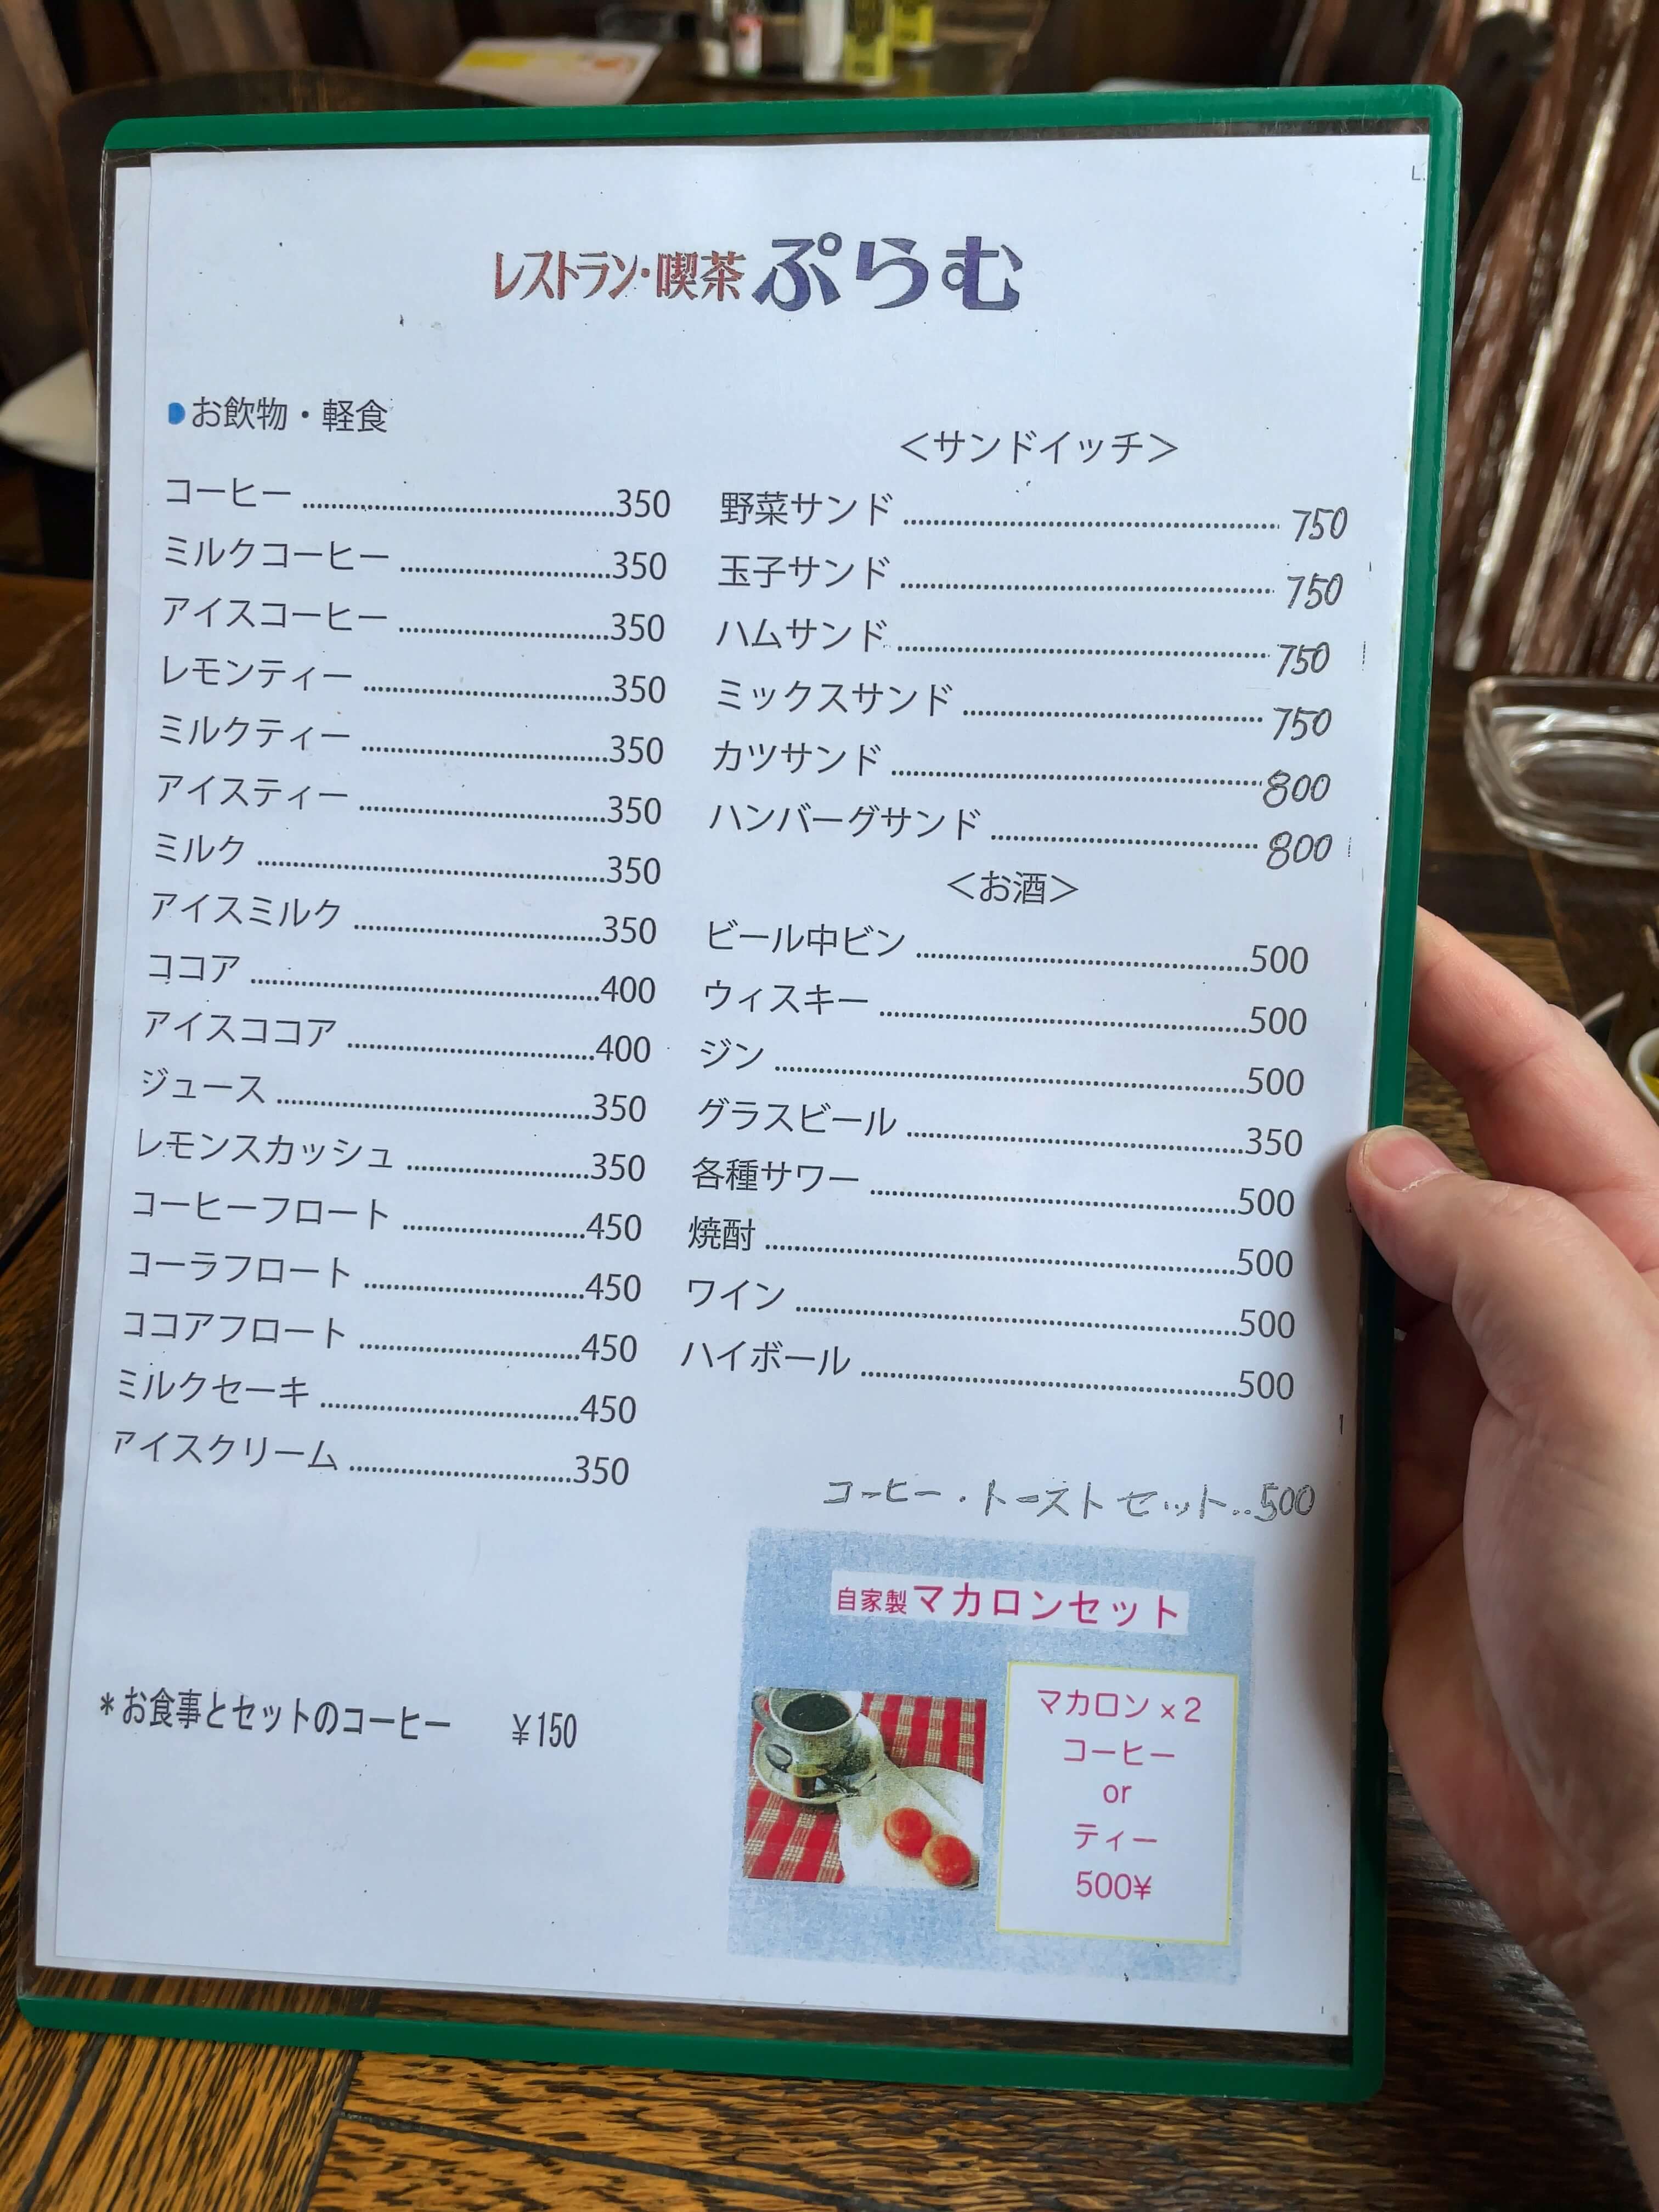 レストラン・喫茶 ぷらむ
お飲物・軽食
コーヒー ........ 350
ミルクコーヒー ........ 350
アイスコーヒー ........ 350
レモンティー ........ 350
ミルクティー ........ 350
アイスティー ........ 350
ミルク ........ 350
アイスミルク ........ 350
ココア ........ 400
アイスココア ........ 400
ジュース ........ 350
レモンスカッシュ ........ 350
コーヒーフロート ........ 450
コーラフロート ........ 450
ココアフロート ........ 450
ミルクセーキ ........ 450
アイスクリーム ........ 350
*お食事とセットのコーヒー ¥150
＜サンドイッチ＞
野菜サンド ........ 750
玉子サンド ........ 750
ハムサンド ........ 750
ミックスサンド ........ 750
カツサンド ........ 800
ハンバーグサンド ........ 800
＜お酒＞
ビール中ビン ........ 500
ウィスキー ........ 500
ジン ........ 500
グラスビール ........ 350
各種サワー ........ 500
焼酎 ........ 500
ワイン ........ 500
ハイボール ........ 500
コーヒー・トーストセット..500
自家製マカロンセット
マカロン×2
コーヒー
or
ティー
500¥